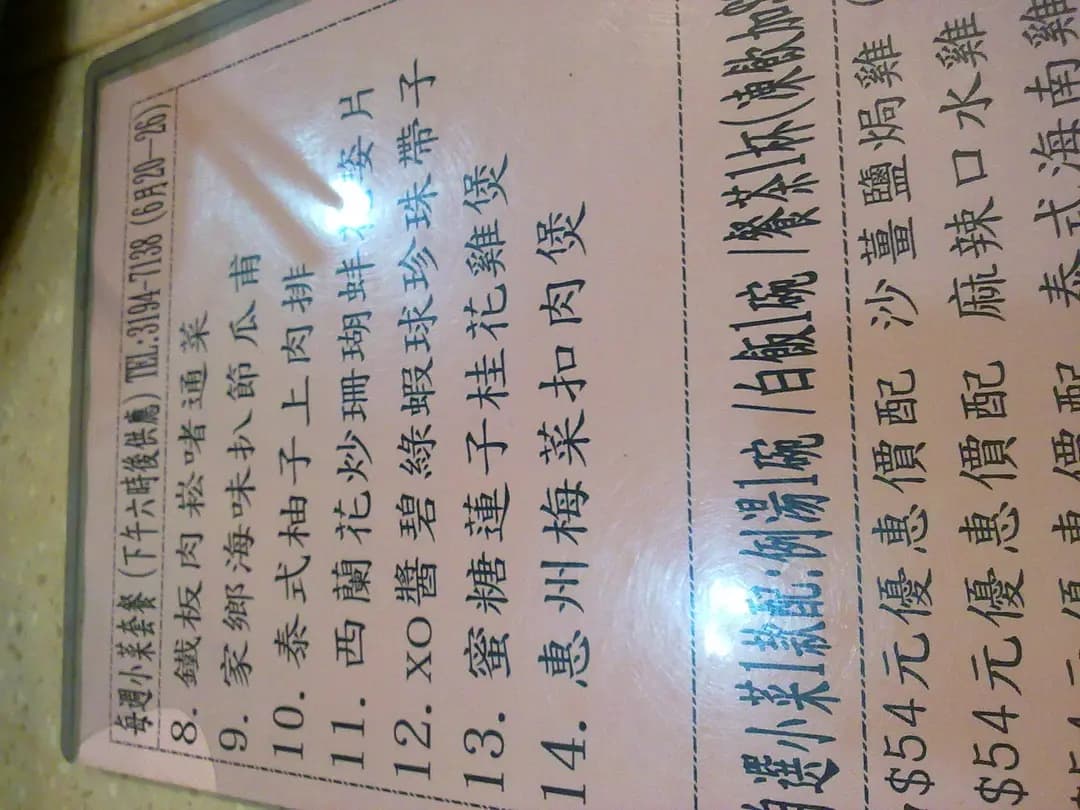 每週小菜套餐(下午六時後供應)TEL:3194-7138(6月20-26)
8. 鐵板肉崧啫通菜
9. 家鄉海味扒節瓜甫
10. 泰式柚子上肉排
11. 西蘭花炒珊瑚蚌花姿片
12. XO醬碧綠蝦球珍珠帶子
13. 蜜糖蓮子桂花雞煲
14. 惠州梅菜扣肉煲
自選小菜1款配:例湯1碗/白飯1碗/餐茶1杯(凍飲加
$54元優惠價配 沙薑鹽焗雞
$54元優惠價配 麻辣口水雞
優惠價配 泰式海南雞